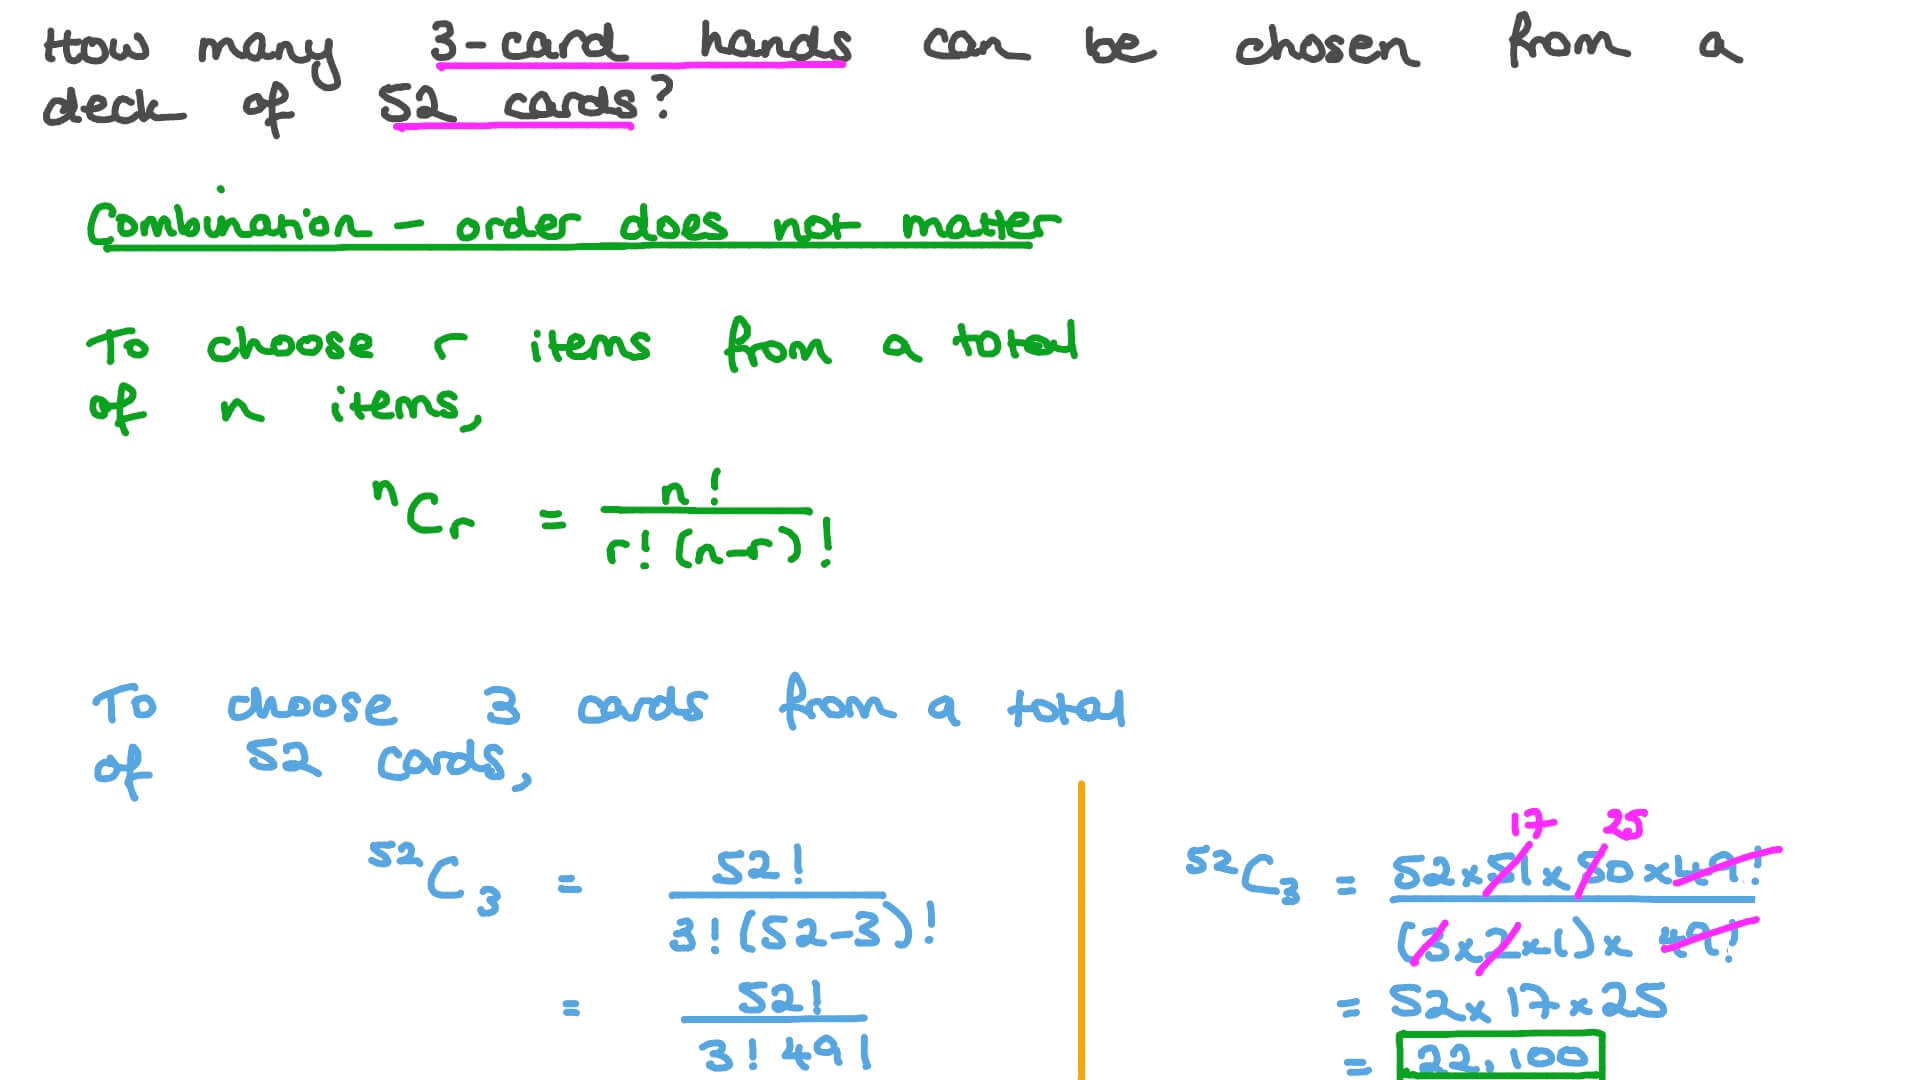 How many 3-card hands can be chosen from a
deck of 52 cards?
Combination - order does not matter
To choose r items from a total
of n items,
ⁿCᵣ = n! / r!(n-r)!
To choose 3 cards from a total
of 52 cards,
⁵²C₃ = 52! / 3!(52-3)!
= 52! / 3! 49!
17 25
⁵²C₃ = 52×51×50×49! / (3×2×1)×49!
= 52×17×25
= 22,100